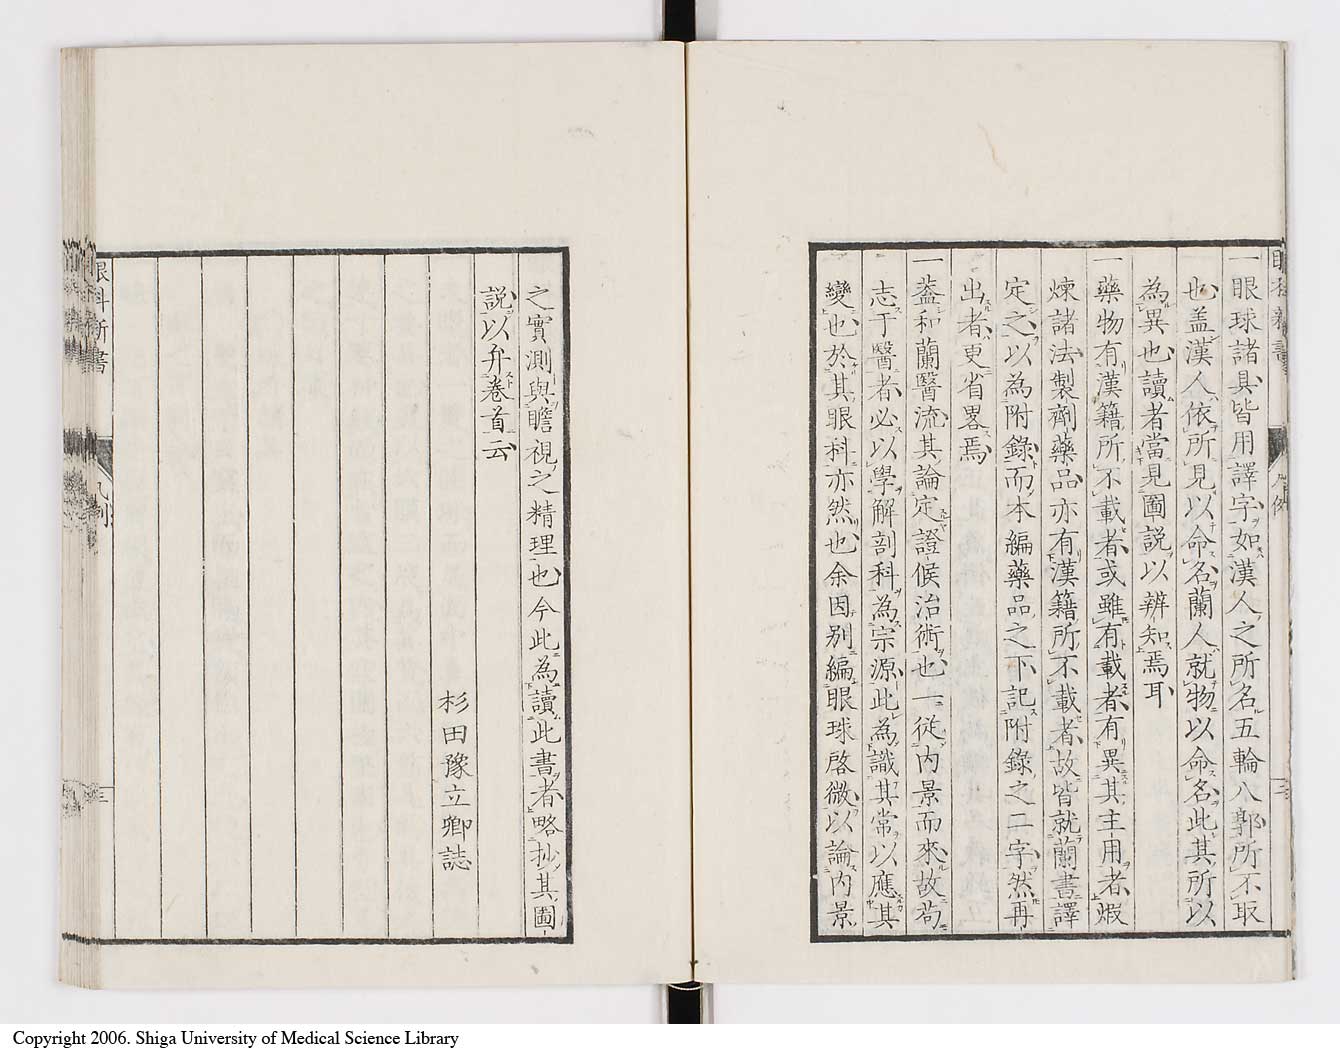 一眼球諸具皆用譯字如漢人之所名五輪八郭所不取
也盖漢人依所見以命名蘭人就物以命名此其所以
為異也讀者當見圖説以辨知焉耳
一藥物有漢籍所不載者或雖有載者有異其主用者煆
煉諸法製劑藥品亦有漢籍所不載者故皆就蘭書譯
定之以為附錄而本編藥品之下記附錄之二字然再
出者更省畧焉
一葢和蘭醫流其論定證候治術也一從内景而來故苟
志于醫者必以學解剖科為宗源此為識其常以應其
變也於其眼科亦然也余因別編眼球啓微以論内景
之實測與瞻視之精理也今此為讀此書者略抄其圖
説以弁卷首云
杉田豫立卿誌
眼科新書
凡例
三
Copyright 2006. Shiga University of Medical Science Library